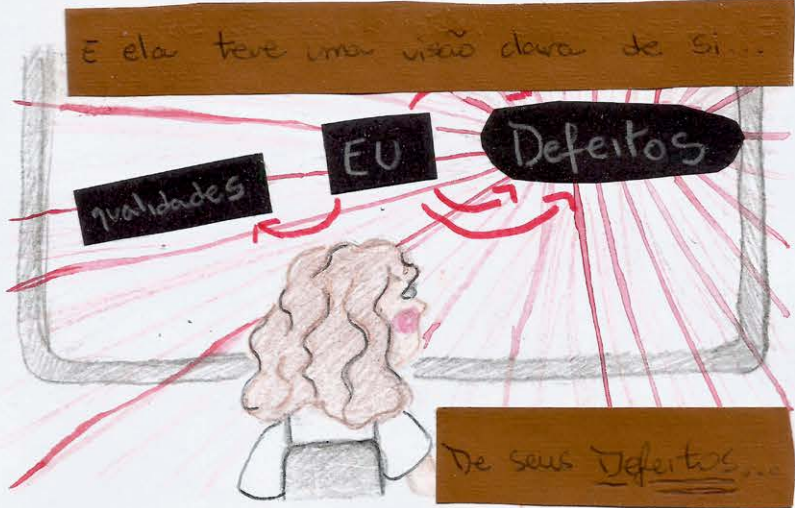 E ela teve uma visão clara de si...
qualidades
EU
Defeitos
De seus Defeitos...